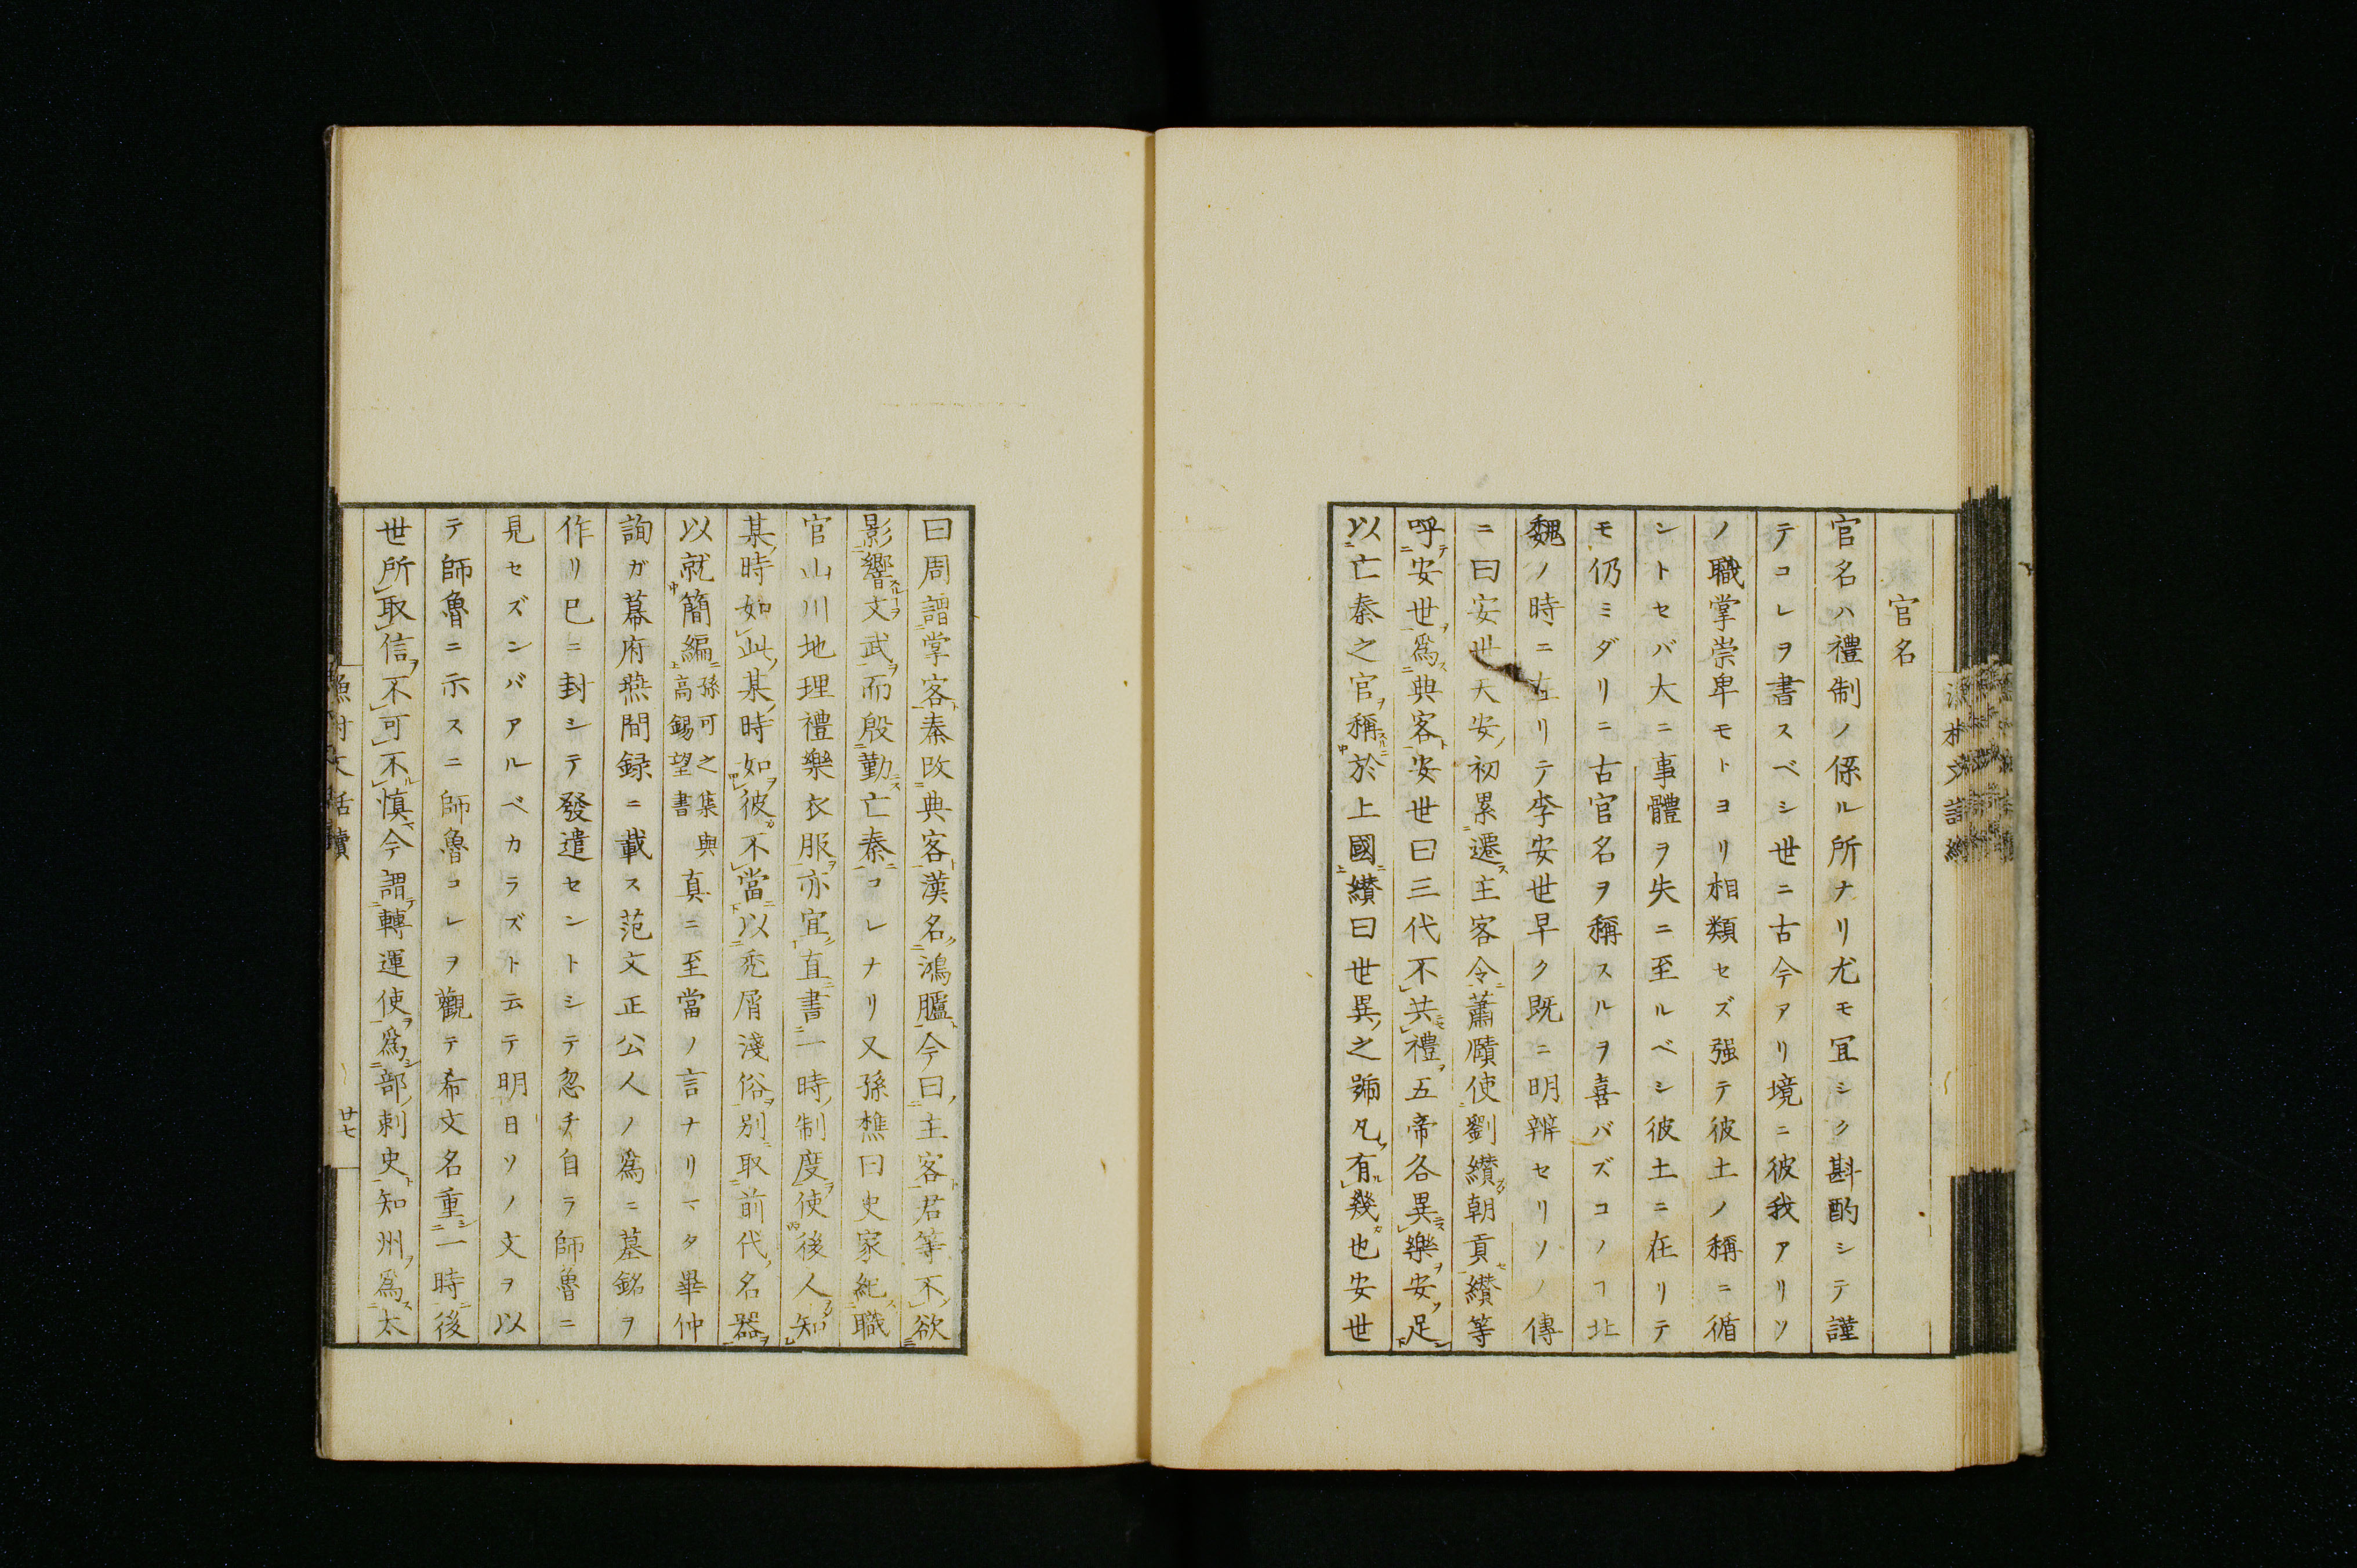 官名
官名ハ禮制ノ係ル所ナリ尤モ冝シク斟酌シテ謹
テコレヲ書スベシ世ニ古今アリ境ニ彼我アリソ
ノ職掌崇卑モトヨリ相類セズ强テ彼土ノ稱ニ循
ントセバ大ニ事體ヲ失ニ至ルベシ彼土ニ在リテ
モ仍ミダリニ古官名ヲ稱スルヲ喜バズコノヿ北
魏ノ時ニ在リテ李安世早ク既ニ明辨セリソノ傳
ニ曰安世天安初累遷主客令蕭賾使劉纉朝貢纉等
呼安世爲典客安世曰三代不共禮五帝各異樂安足
以亡秦之官稱於上國纉曰世異之號凡有幾也安世
曰周謂掌客秦改典客漢名鴻臚今曰主客君等不欲
影響文武而殷勤亡秦コレナリ又孫樵曰史家紀職
官山川地理禮樂衣服亦宜直書一時制度使後人知
某時如此某時如彼不當以禿屑淺俗别取前代名器
以就簡編孫可之集與高錫望書真ニ至當ノ言ナリマタ畢仲
詢ガ幕府燕間録ニ載ス范文正公人ノ爲ニ墓銘ヲ
作リ已ニ封シテ發遣セントシテ忽チ自ラ師魯ニ
見セズンバアルベカラズト云テ明日ソノ文ヲ以
テ師魯ニ示スニ師魯コレヲ觀テ希文名重一時後
世所取信不可不慎今謂轉運使爲部刺史知州爲太
漁村文話續
廿七